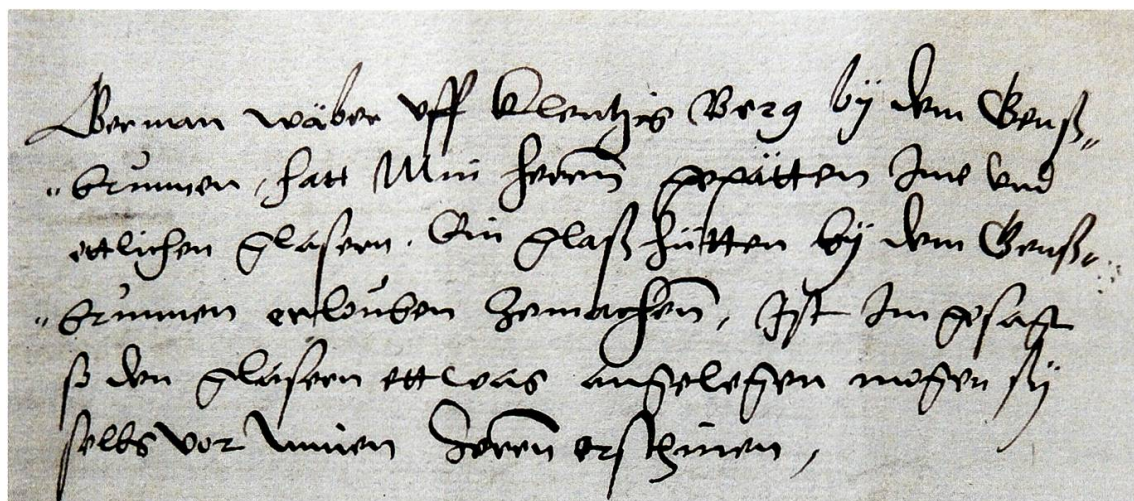 German wäber uff Klentzis Berg bÿ dem Genß„
„brunnen, hatt Min herren gepätten Ime und
ettlichen glasern. Ein glaßhütten bÿ dem Genß„
„brunnen erlouben zemachen, Ist Im gesagt
so den glasern ettwas angelegen mogen sÿ
selbs vor minen Herren erschinen,